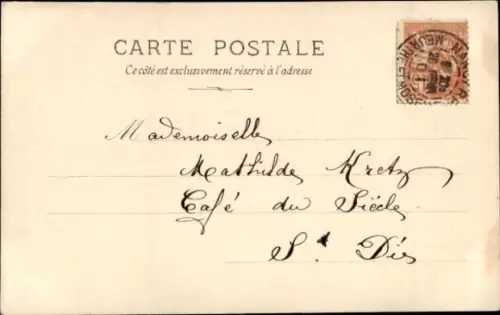 CARTE POSTALE
Ce côté est exclusivement réservé à l'adresse
Mademoiselle
Mathilde Kretz
Café du Siècle
St Dié
MEURTHE-ET-MOSELLE